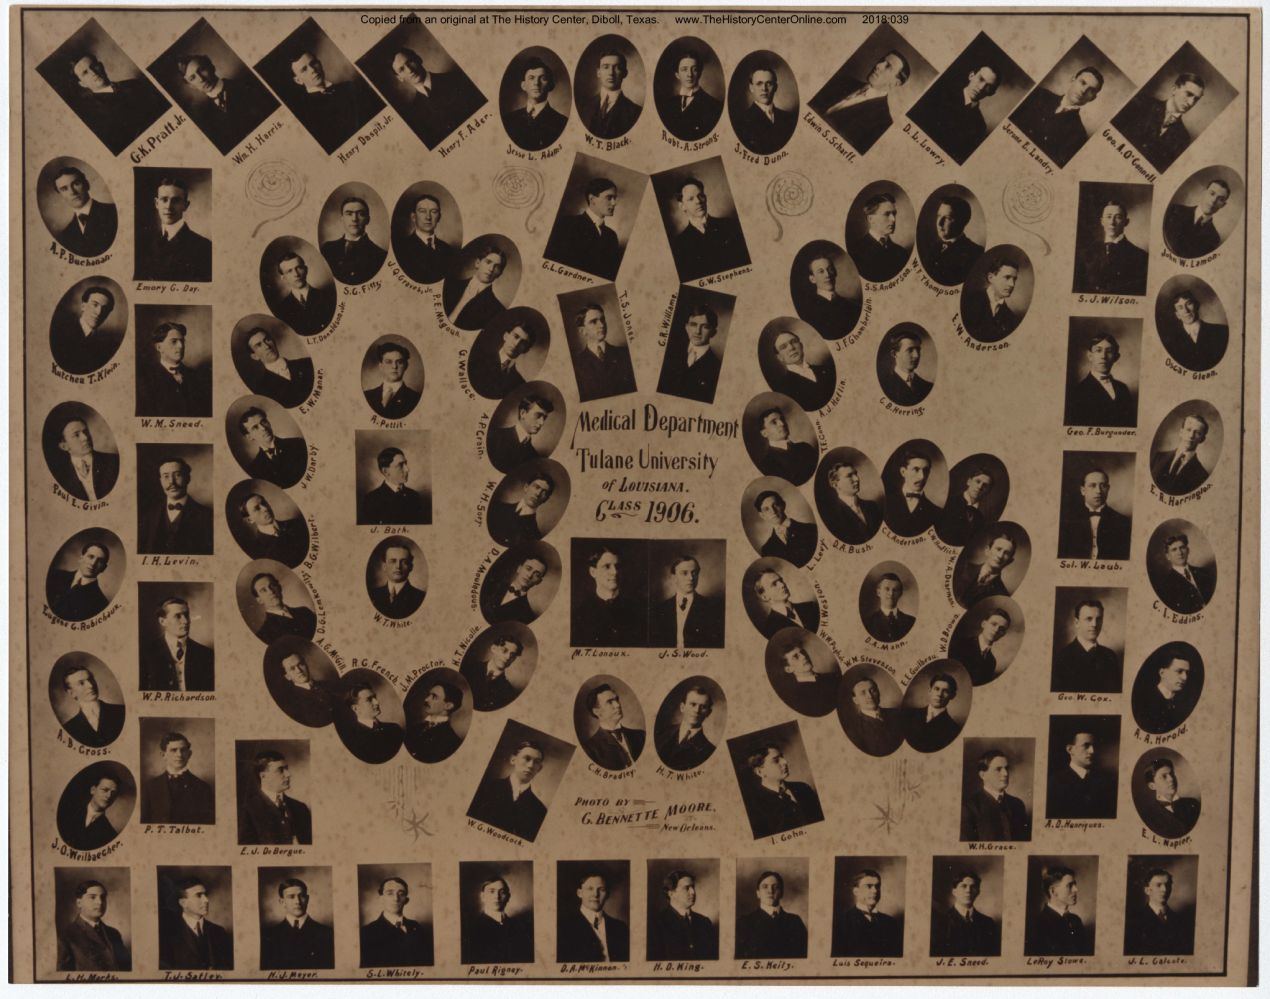 Copied from an original at The History Center, Diboll, Texas. www.TheHistoryCenterOnline.com 2018:039
G.K. Pratt, Jr.
Wm. H. Harris.
Henry Daspit, Jr.
Henry F. Ader.
Jesse L. Adams
W. T. Black.
Robt. A. Strong.
J. Fred Dunn.
Edwin S. Scharff.
D. L. Lowry.
Jerome E. Landry.
Geo. A. O'Connell.
A. P. Buchanan.
Emory G. Day.
S. C. Fitts
J. Q. Graves, Jr.
G. L. Gardner.
G. W. Stephens.
S. S. Anderson.
W. F. Thompson.
S. J. Wilson.
John W. Lemon.
L. T. Donaldson, Jr.
P. E. Magoun.
T. S. Jones.
G. R. Williams.
J. F. Chamberlain.
E. W. Anderson.
Kutchea T. Klein.
W. M. Sneed.
E. W. Maner.
A. Pettit.
G. Wallace.
A. J. Heflin.
C. B. Herring.
Geo. F. Burgunder.
Oscar Glenn.
Medical Department
Tulane University
of Louisiana.
Class 1906.
Paul E. Givin.
I. H. Levin.
J. W. Darby.
J. Bath.
A. P. Crain.
W. H. Sory.
D. A. Bush.
C. L. Anderson.
Sol. W. Laub.
E. R. Harrington.
Eugene G. Robichaux.
W. P. Richardson.
B. G. Wilbert.
W. T. White.
L. Levy.
H. Weston.
D. A. Mann.
W. D. Brown.
Geo. W. Cox.
C. I. Eddins.
R. G. French.
J. M. Proctor.
H. T. Nicolle.
M. T. Lanaux.
J. S. Wood.
W. M. Stevenson.
E. E. Guilbeau.
A. B. Cross.
P. T. Talbot.
C. H. Bradley.
H. T. White.
A. A. Herold.
J. O. Weilbaecher.
E. J. DeBergue.
W. G. Woodcock.
Photo by
G. Bennette Moore,
New Orleans.
I. Cohn.
W. H. Grace.
A. D. Henriques.
E. L. Napier.
L. H. Marks.
T. J. Satley.
H. J. Meyer.
S. L. Whitely.
Paul Rigney.
D. A. McKinnon.
H. D. King.
E. S. Keitz.
Luis Sequeira.
J. E. Sneed.
LeRoy Stowe.
J. L. Calcote.